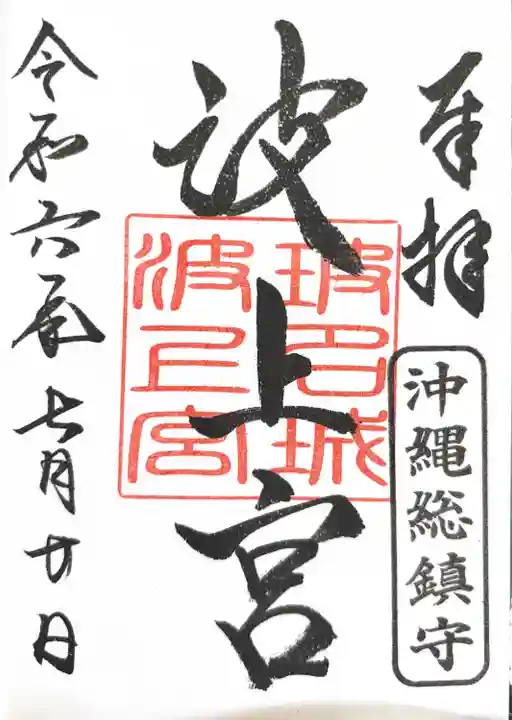 奉拝
沖縄総鎮守
波上宮
玻名城
波上宮
令和六年七月廿日